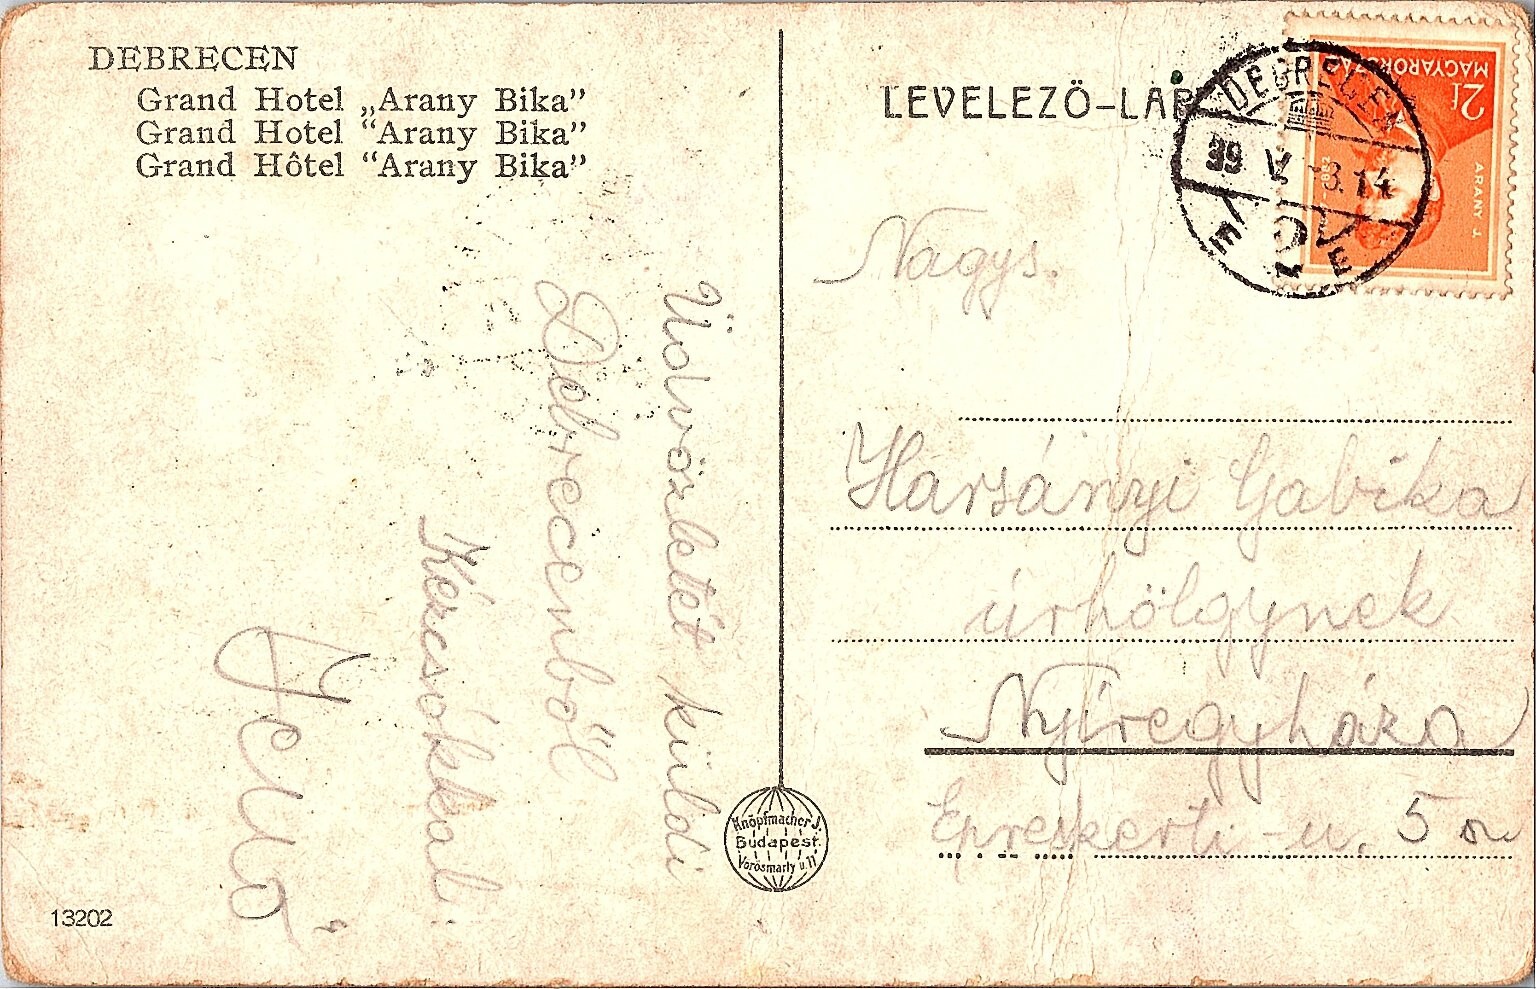 DEBRECEN
Grand Hotel „Arany Bika”
Grand Hotel “Arany Bika”
Grand Hôtel “Arany Bika”
Üdvözletét küldi
Debrecenből
Kézcsókkal:
Jenő
13202
Knöpfmacher J.
Budapest.
Vörösmarty u. 11
LEVELEZŐ-LAP
MAGYARORSZÁG
2f
ARANY J.
DEBRECEN
39 V -3.14
Nagys.
Harsányi Gabika
úrhölgynek
Nyíregyháza
Epreskerti-u. 5